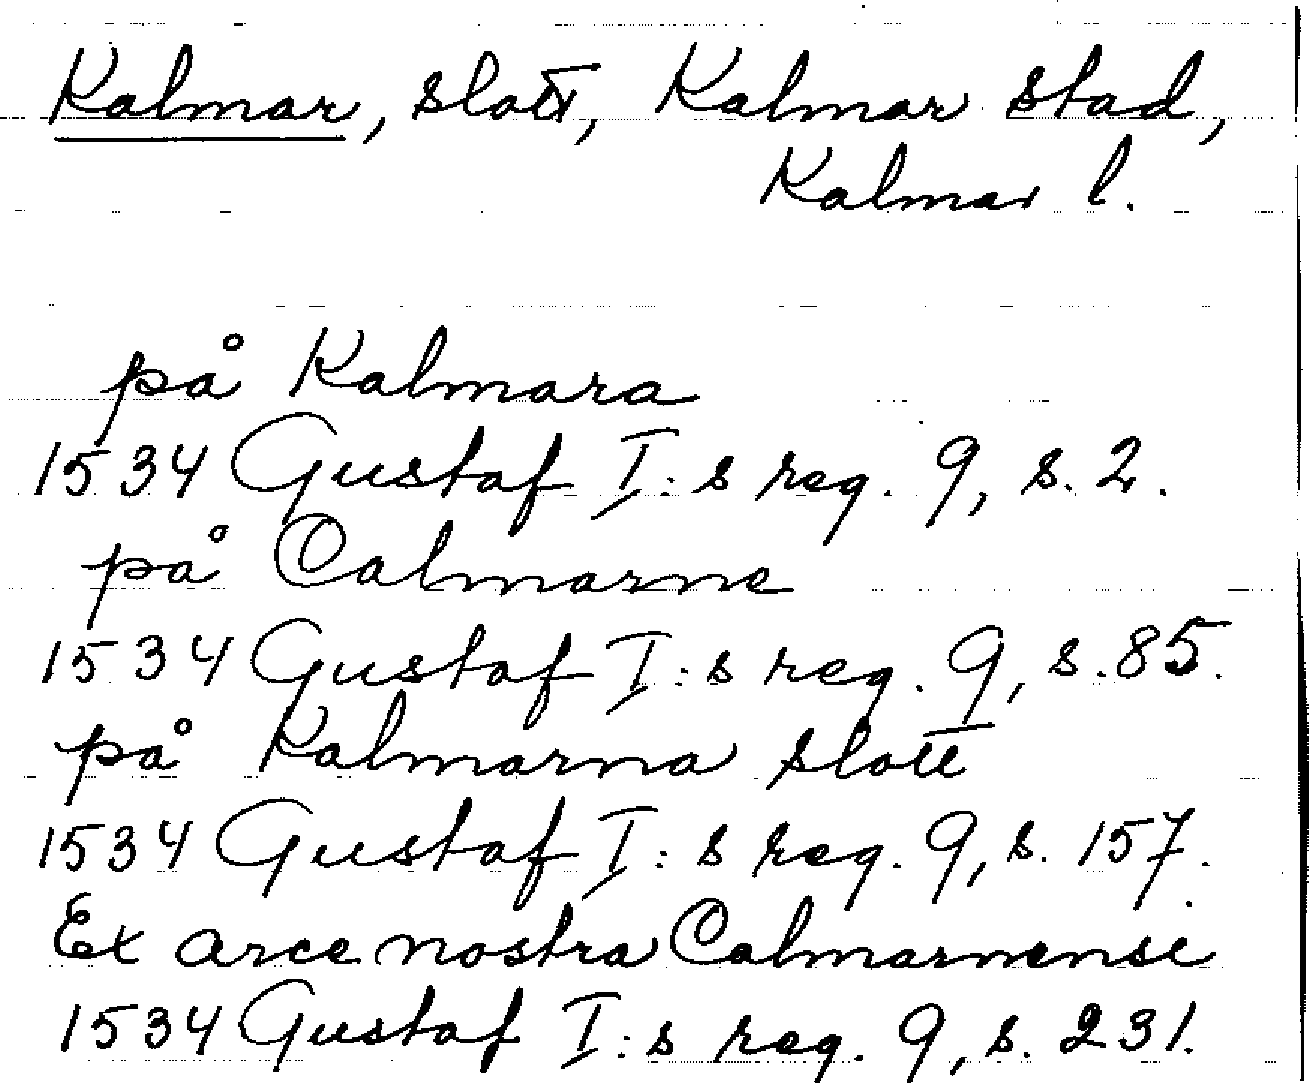 Kalmar, slott, Kalmar stad,
Kalmar l.
på Kalmara
1534 Gustaf I:s reg. 9, s. 2.
på Calmarne
1534 Gustaf I:s reg. 9, s. 85.
på Kalmarna slott
1534 Gustaf I:s reg. 9, s. 157.
Ex arce nostra Calmarnense
1534 Gustaf I:s reg. 9, s. 231.